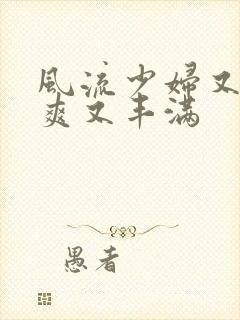 風流少婦又
爽又丰满
愚者